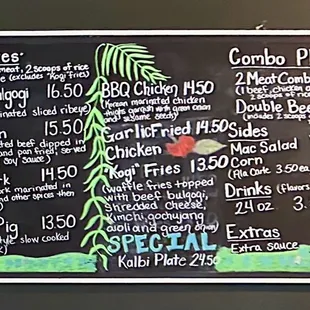 meat, 2 scoops of rice
(excludes "Kogi" fries)
16.50
marinated sliced ribeye)
15.50
beef dipped in
and pan fried, served
soy sauce)
14.50
marinated in
and other spices then
Pig 13.50
style slow cooked
BBQ Chicken 14.50
(Korean marinated chicken
thighs garnish with green onion
and sesame seeds)
Garlic Fried 14.50
Chicken
"Kogi" Fries 13.50
(waffle fries topped
with beef bulgogi,
Shredded cheese,
Kimchi, gochujang
aioli and green onion)
SPECIAL
Kalbi Plate 24.50
Combo
2 Meat Comb
(1 beef, chicken
2 scoops of
Double Bee
(includes 2 scoops
Sides
Mac Salad
Corn
(Ala Carte 3.50 ea
Drinks (Flavors
24 oz 3.
Extras
Extra sauce